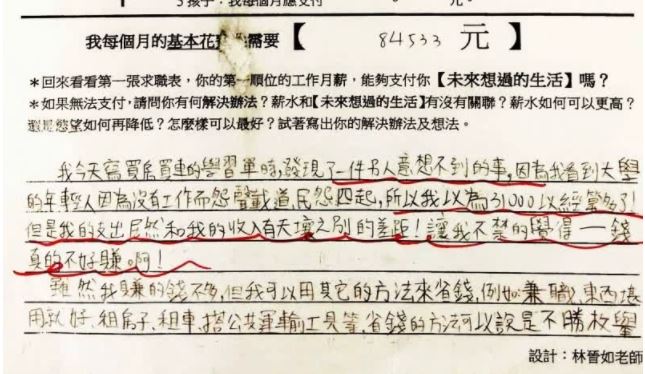 5 孩子：我每個月應支付 元。
我每個月的基本花費需要【 84533 元 】
＊回來看看第一張求職表，你的第一順位的工作月薪，能夠支付你【未來想過的生活】嗎？
＊如果無法支付，請問你有何解決辦法？薪水和【未來想過的生活】有沒有關聯？薪水如何可以更高？
還是慾望如何再降低？怎麼樣可以最好？試著寫出你的解決辦法及想法。
我今天寫買房買車的學習單時，發現了一件另人意想不到的事，因為我看到大學
的年輕人因為沒有工作而怨聲載道、民怨四起，所以我以為31000以經算多了！
但是我的支出居然和我的收入有天壤之別的差距！讓我不禁的覺得一錢
真的不好賺啊！
雖然我賺的錢不多，但我可以用其它的方法來省錢，例如兼職、東西堪
用就好、租房子、租車、搭公共運輸工具等，省錢的方法可以說是不勝枚舉
設計：林晉如老師